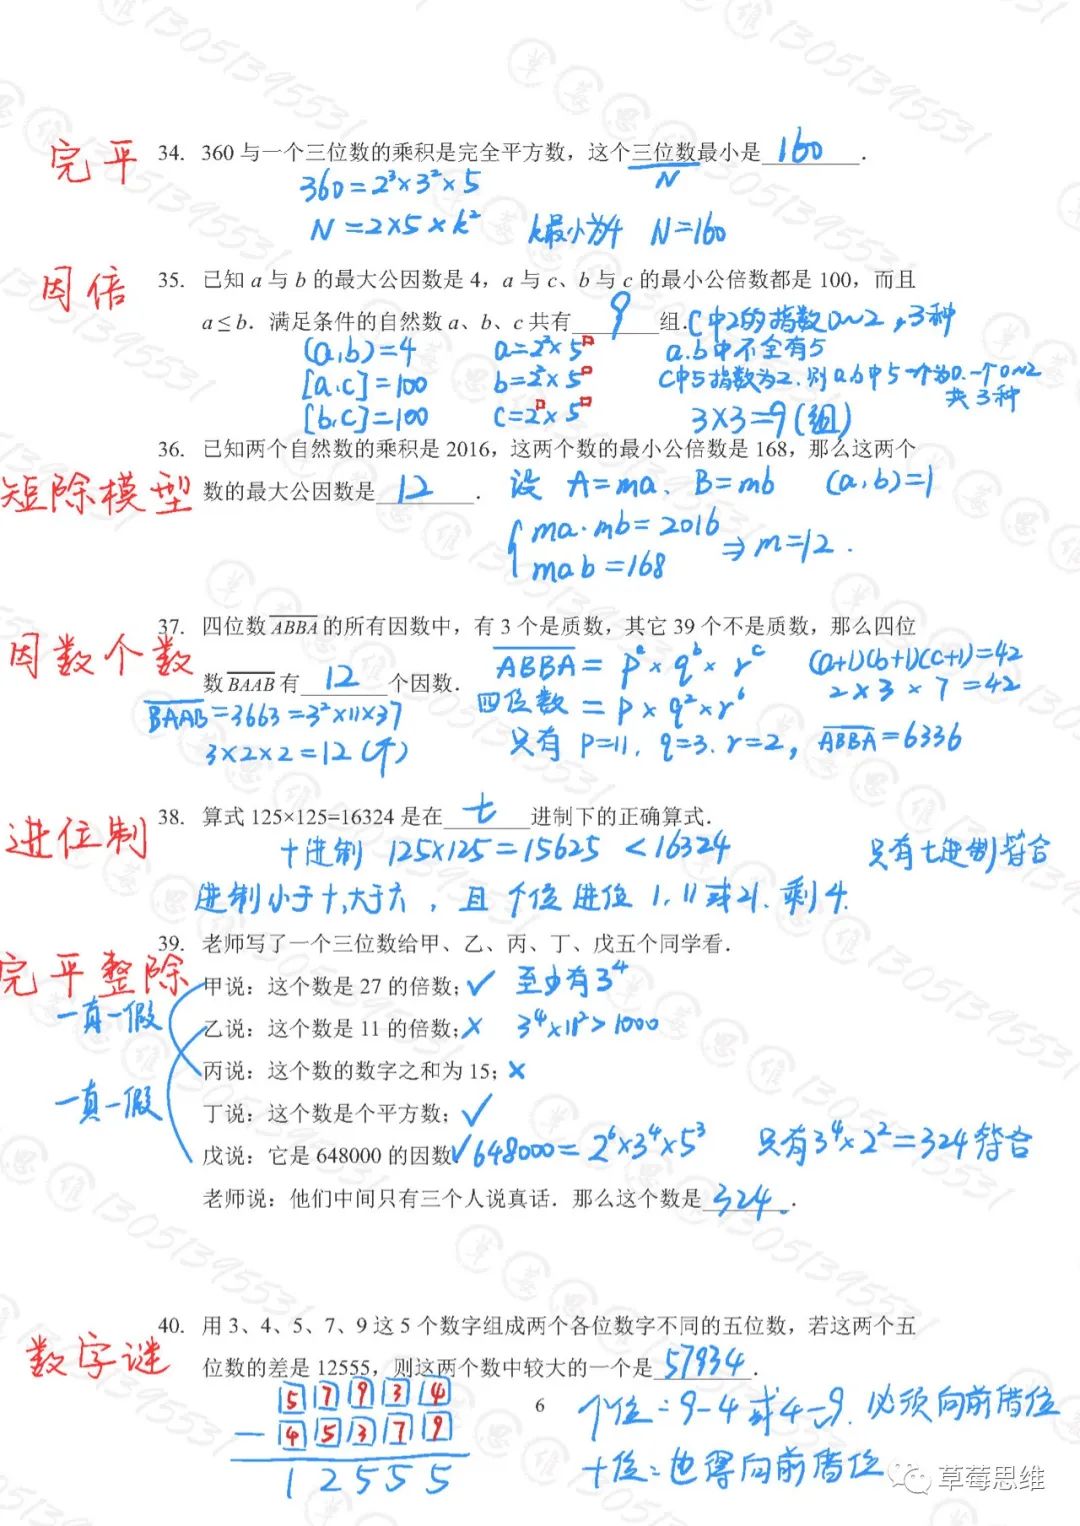 完平
34. 360 与一个三位数的乘积是完全平方数，这个三位数最小是 160 .
360=2³×3²×5
N
N=2×5×k² k最小为4 N=160
因倍
35. 已知 a 与 b 的最大公因数是 4，a 与 c、b 与 c 的最小公倍数都是 100，而且
a≤b．满足条件的自然数 a、b、c 共有 9 组.
C中2的指数0~2，3种
(a,b)=4 a=2²×5□ a.b中不全有5
[a,c]=100 b=2²×5□ C中5指数为2.则ab中5一个为0.一个0~2
共3种
[b,c]=100 C=2□×5□ 3×3=9(组)
36. 已知两个自然数的乘积是 2016，这两个数的最小公倍数是 168，那么这两个
短除模型
数的最大公因数是 12 .
设 A=ma、B=mb (a,b)=1
ma·mb=2016
mab=168
⇒m=12.
37. 四位数 ABBA 的所有因数中，有 3 个是质数，其它 39 个不是质数，那么四位
因数个数
数 BAAB 有 12 个因数.
ABBA=pᵃ×qᵇ×rᶜ (a+1)(b+1)(c+1)=42
2×3×7=42
四位数=p×q²×r⁶
BAAB=3663=3²×11×37
只有 P=11, q=3. r=2, ABBA=6336
3×2×2=12(个)
进位制
38. 算式 125×125=16324 是在 七 进制下的正确算式.
十进制 125×125=15625<16324 只有七进制符合
进制小于十,大于六，且个位进位1,11或21.剩4.
39. 老师写了一个三位数给甲、乙、丙、丁、戊五个同学看.
完平整除
甲说：这个数是 27 的倍数；✓ 至少有3⁴
一真一假
乙说：这个数是 11 的倍数；× 3⁴×11²>1000
丙说：这个数的数字之和为 15；×
一真一假
丁说：这个数是个平方数；✓
戊说：它是 648000 的因数 ✓ 648000=2⁶×3⁴×5³ 只有3⁴×2²=324符合
老师说：他们中间只有三个人说真话．那么这个数是 324 .
40. 用 3、4、5、7、9 这 5 个数字组成两个各位数字不同的五位数，若这两个五
数字谜
位数的差是 12555，则这两个数中较大的一个是 57934 .
5 7 9 3 4
6
个位：9-4或4-9.必须向前借位
- 4 5 3 7 9
1 2 5 5 5
十位：也得向前借位
草莓思维
草莓思维13051395531